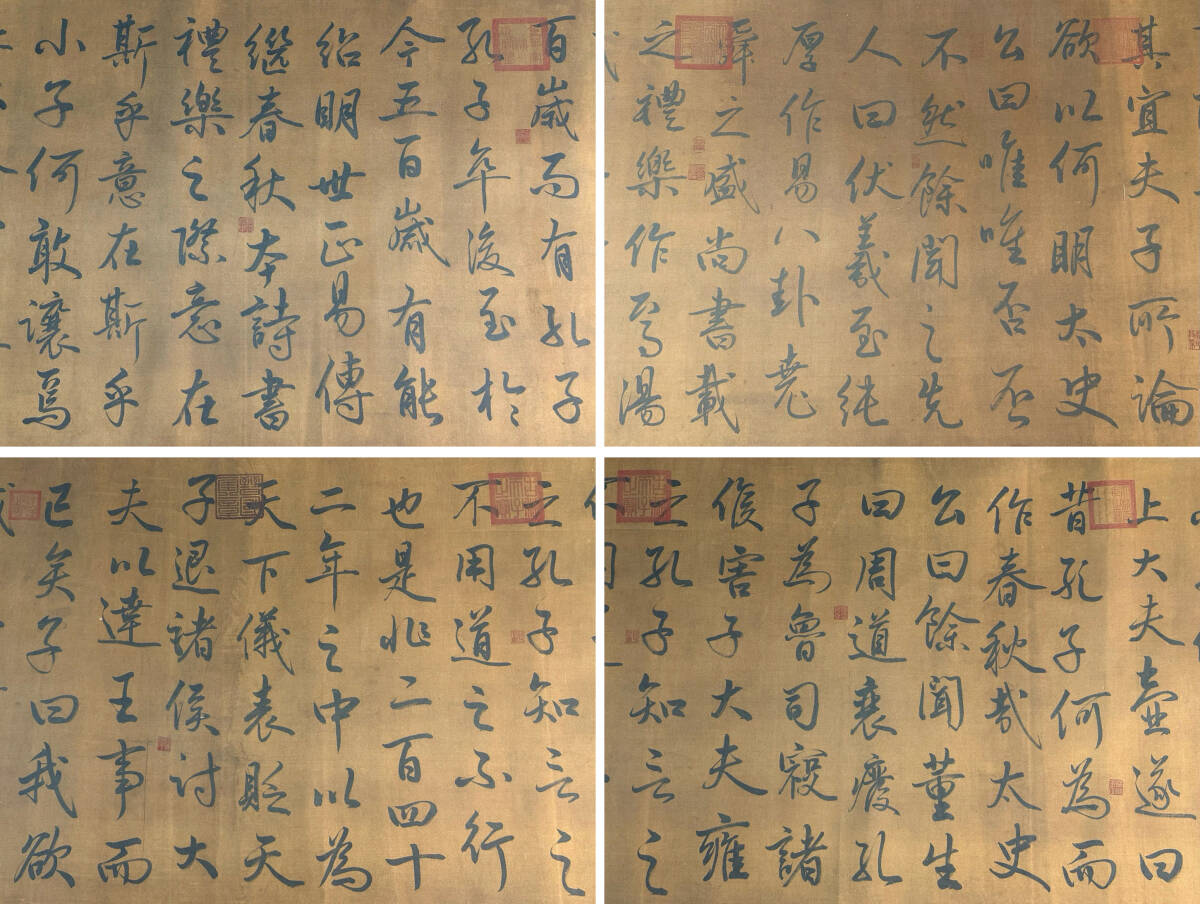 百歲而有孔子
孔子卒後至於
今五百歲有能
紹明世正易傳
繼春秋本詩書
禮樂之際意在
斯乎意在斯乎
小子何敢讓焉
其宜夫子所論
欲以何明太史
公曰唯唯否否
不然餘聞之先
人曰伏羲至純
厚作易八卦堯
舜之盛尚書載
之禮樂作焉湯
之孔子知言之
不用道之不行
也是非二百四十
二年之中以為
天下儀表貶天
子退諸侯討大
夫以達王事而
已矣子曰我欲
上大夫壺遂曰
昔孔子何為而
作春秋哉太史
公曰餘聞董生
曰周道衰廢孔
子為魯司寇諸
侯害子大夫雍
之孔子知言之